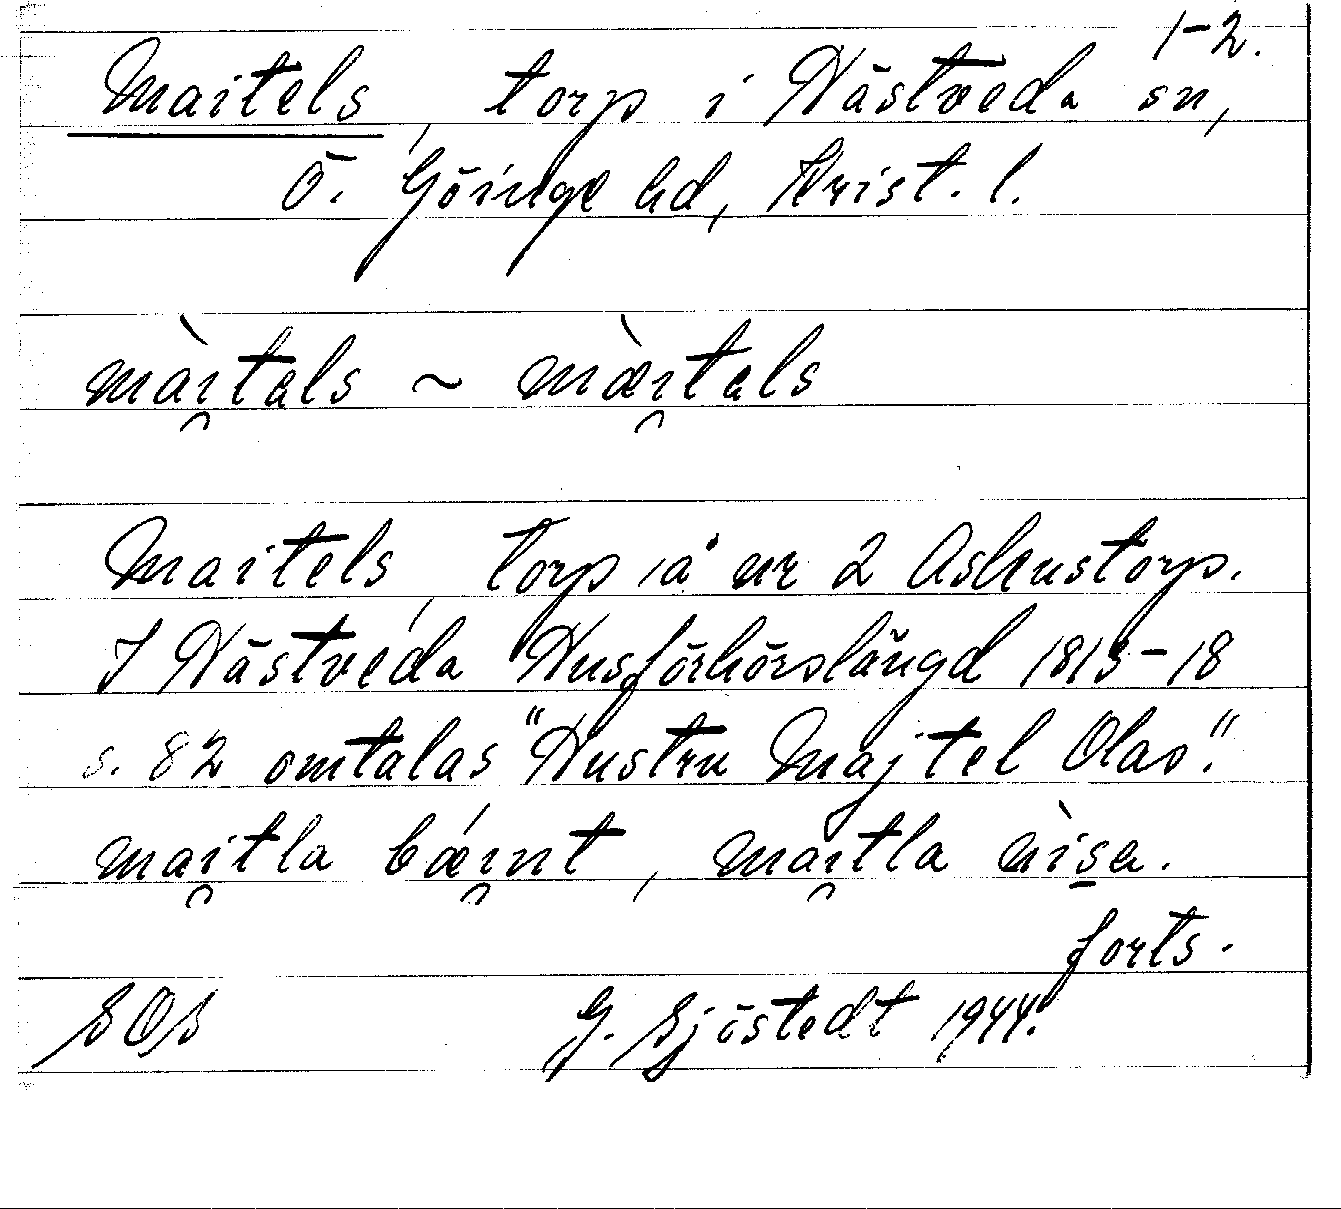 1-2.
Maitels, torp i Nästveda sn,
Ö. Göinge hd, Krist. l.
màı̯tals ~ mæ̀ı̯tals
Maitels, torp å nr 2 Askustorp.
I Nästveda Husförhörslängd 1813-18
s. 82 omtalas "Hustru Majtel Olas".
maı̯tla bǽı̯nt, maı̯tla nìsa.
forts.
SOS G. Sjöstedt 1944.